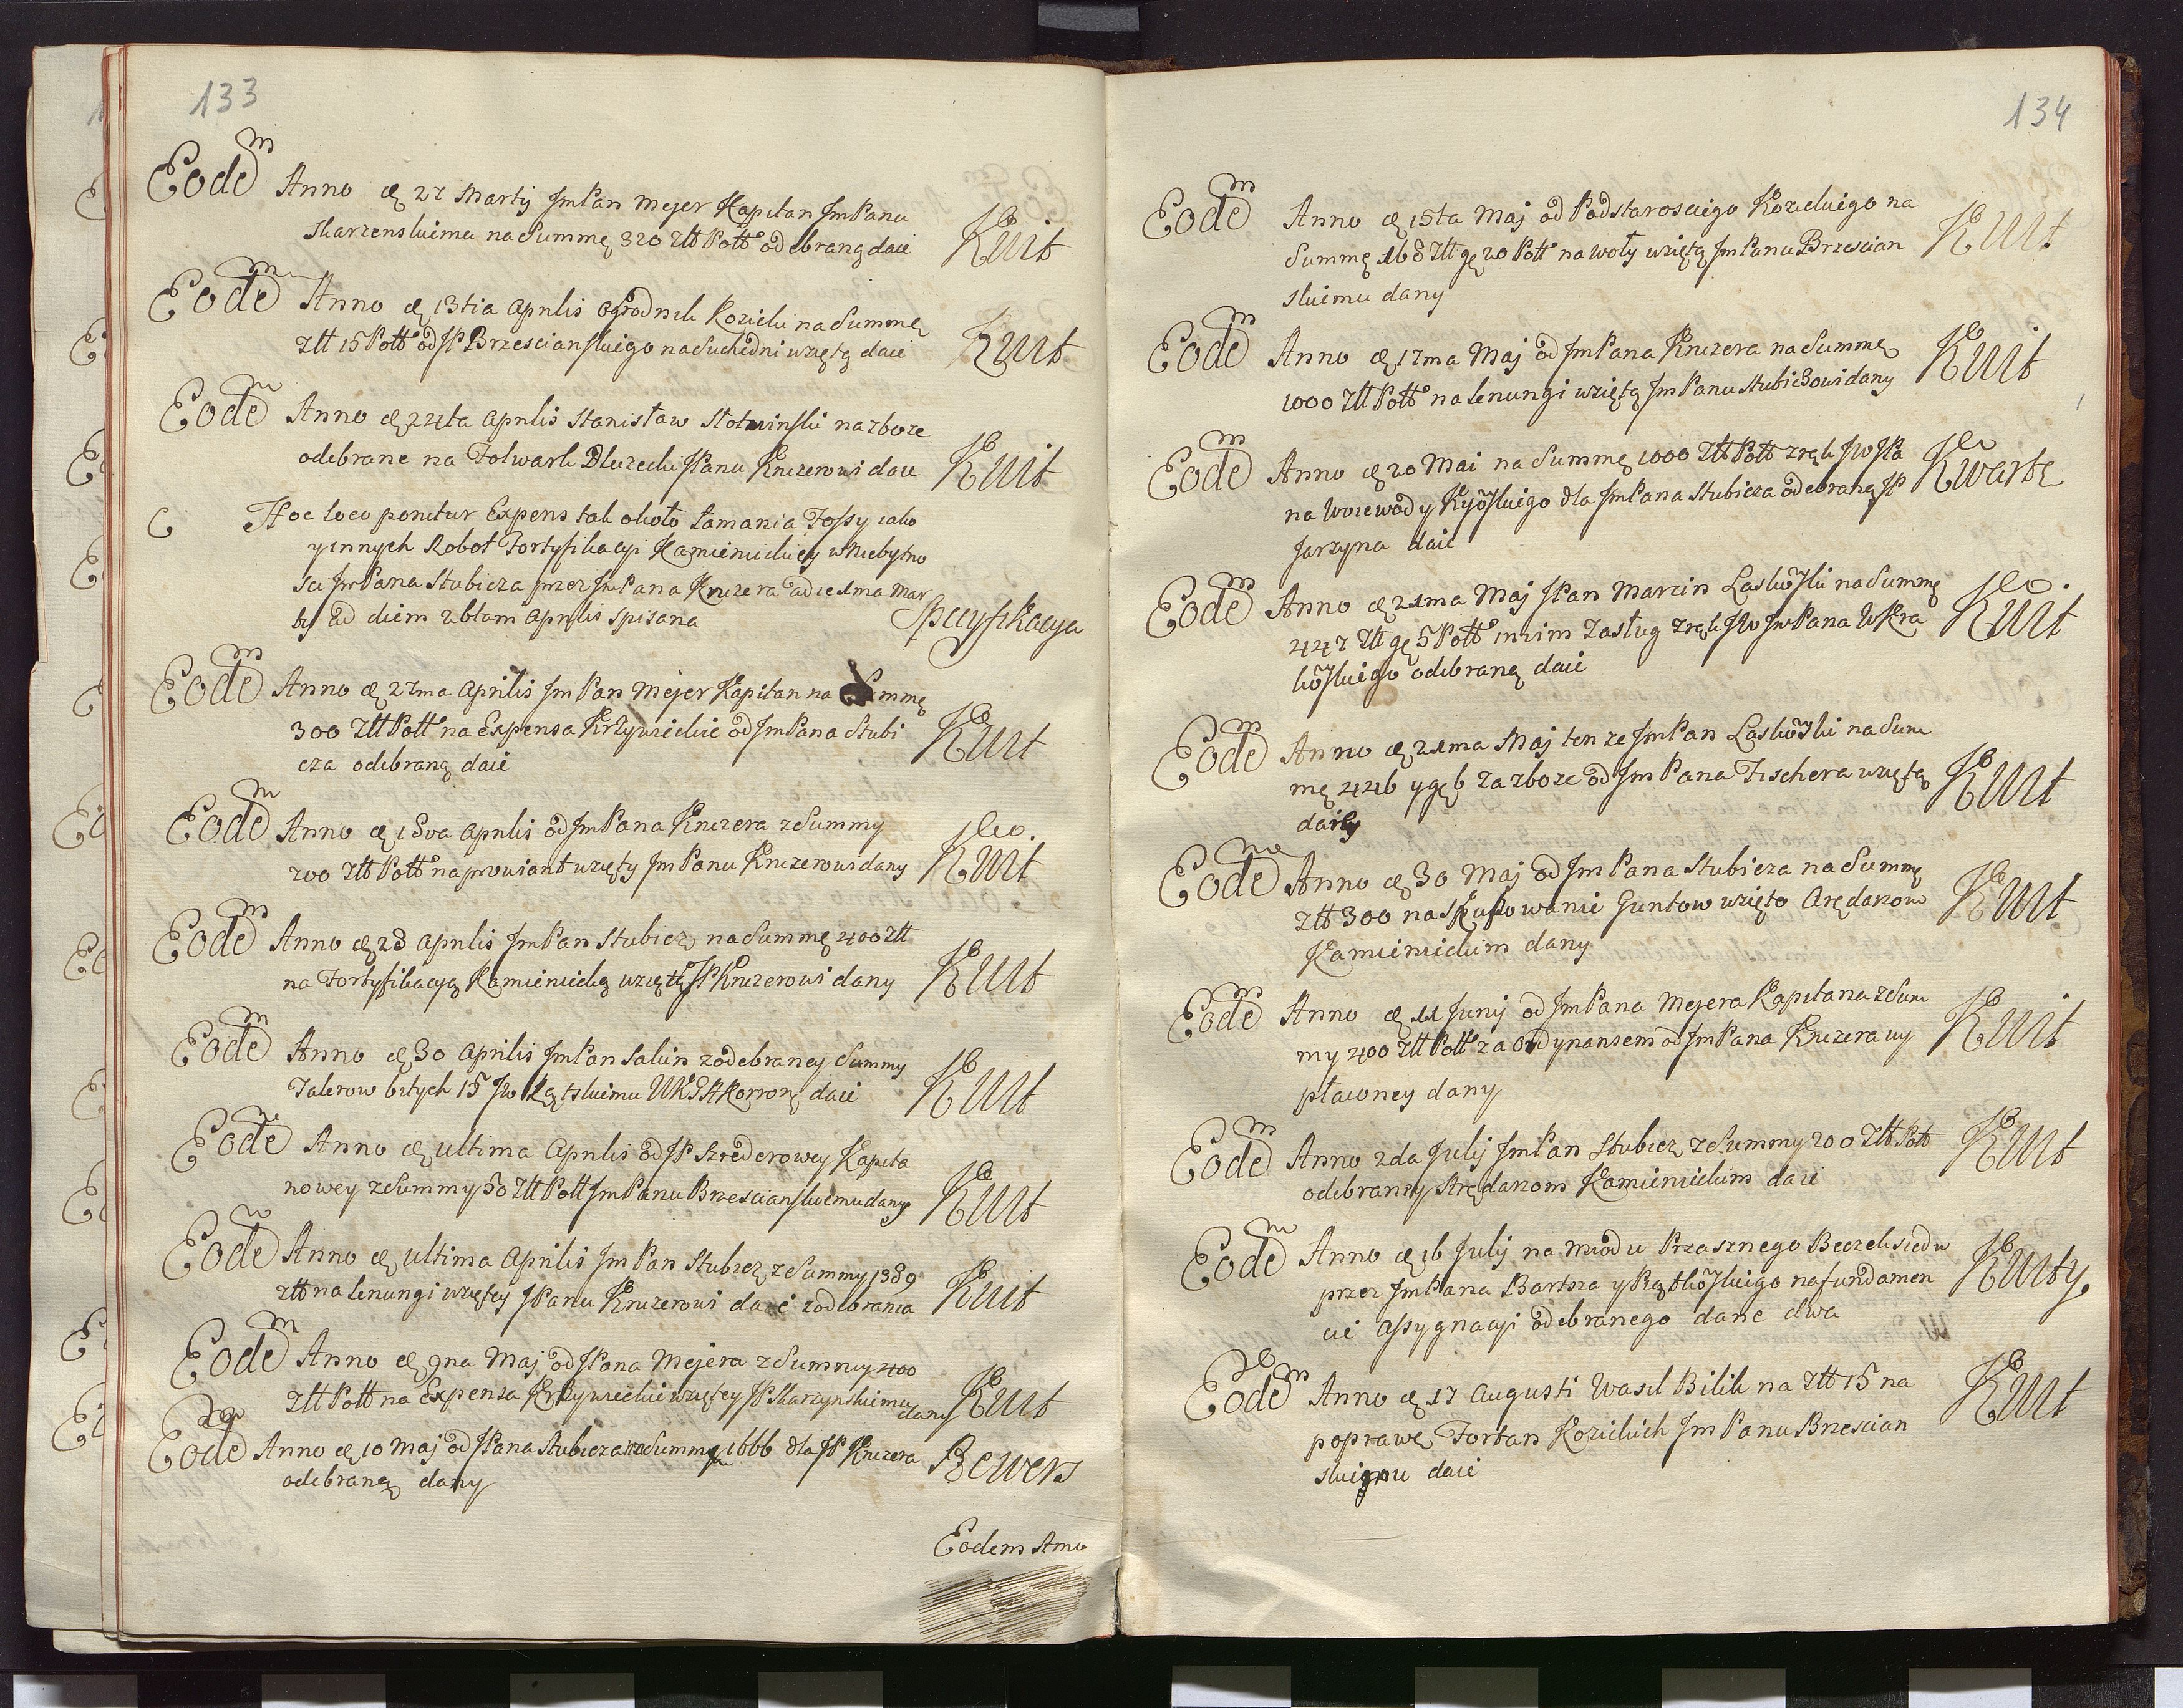 133
Eodem Anno d. 27 Martij Jm Pan Mejer Kapitan Jm Panu
Skarzenskiemu na Summę 320 Złł Poll odebraną daie Kwit
Eodem Anno d. 13tia Aprilis Ogrodnik Kozicki na Summę
Złł 15 Poll od JP Brzescianskiego na Suchedni wziętą daie Kwit
Eodem Anno d. 24ta Aprilis Stanisław Słotwinski na zboze
odebrane na Folwark Dłuzecki JPanu Knizerowi daie Kwit
C Hoc loco ponitur Expens tak około łamania Fossy iako
y innych Robot Fortyfikacyi Kamienieckiey w Niebytno
sci Jm Pana Stubicza przez Jm Pana Knizera ad 1ma Mar
tij ad diem 26tam Aprilis spisana Specyfikacya
Eodem Anno d. 27ma Aprilis Jm Pan Mejer Kapitan na Summę
300 Złł Poll na Expensa Krzywieckie od Jm Pana Stubi
cza odebraną daie Kwit
Eodem Anno d. 18va Aprilis od Jm Pana Knizera z Summy
200 Złł Poll na prowiant wzięty Jm Panu Knizerowi dany Kwit
Eodem Anno d. 28 Aprilis Jm Pan Stubicz na Summę 400 Złł
na Fortyfikacyą Kamieniecką wziętą JP Knizerowi dany Kwit
Eodem Anno d. 30 Aprilis Jm Pan Salein z odebraney Summy
Talerow bitych 15 Jw daie Kwit
Eodem Anno d. ultima Aprilis od JP Szrederowey Kapita
nowey z Summy 50 Złł Poll Jm Panu Brzescianskiemu dany Kwit
Eodem Anno d. ultima Aprilis Jm Pan Stubicz z Summy 1389
złł na lenungi wziętey JPanu Knizerowi daie z odebrania Kwit
Eodem Anno d. 9na Maj od JPana Mejera z Summy 400
Złł Poll na Expensa Krzywieckie wziętey JP Skarzynskiemu dany Kwit
Eodem Anno d. 10 Maj od JPana Stubicza na Summę 1666 dla JP Knizera
odebraną dany Rewers
Eodem Anno
134
Eodem Anno d. 15ta Maj od Podstarosciego Kozickiego na
Summę 168 Złł gę 20 Poll na woły wziętą Jm Panu Brzescian
skiemu dany Kwit
Eodem Anno d. 17ma Maj od Jm Pana Knizera na Summę
1000 Złł Poll na lenungi wziętą Jm Panu Stubiczowi dany Kwit
Eodem Anno d. 20 Mai na Summę 1000 Złł Poll z rąk Jw JPa
na Woiewody Kyowskiego dla Jm Pana Stubicza odebraną JP
Jarzyna daie Kwartę
Eodem Anno d. 21ma Maj JPan Marcin Laskowski na Summę
447 Złł gę 5 Poll inzim Zasług z rąk Jw Jm Pana WKra
kowskiego odebraną daie Kwit
Eodem Anno d. 21ma Maj ten ze Jm Pan Laskowski na Sum
mę 4446 y gę 6 za zboze od Jm Pana Fischera wziętą
daie Kwit
Eodem Anno d. 30 Maj od Jm Pana Stubicza na Summę
Złł 300 na skupowanie Guntow wzięto Arędarzom
Kamienieckim dany Kwit
Eodem Anno d. 11 Junij od Jm Pana Mejera Kapitana z Sum
my 400 Złł Poll za Ordynansem od Jm Pana Knizera wy
płaconey dany Kwit
Eodem Anno 2da Julij Jm Pan Stubicz z Summy 200 Złł Poll
odebraney Arędarzom Kamienieckim daie Kwit
Eodem Anno d. 16 Julij na miodu Przasznego Beczek siedm
przez Jm Pana Bartsza y Rątkowskiego na fundamen
cie Assygnacyi odebranego dane dwa Kwity
Eodem Anno d. 17 Augusti Wasil Bilik na Złł 15 na
poprawę Fortan Kozickich Jm Panu Brzescian
skiemu daie Kwit